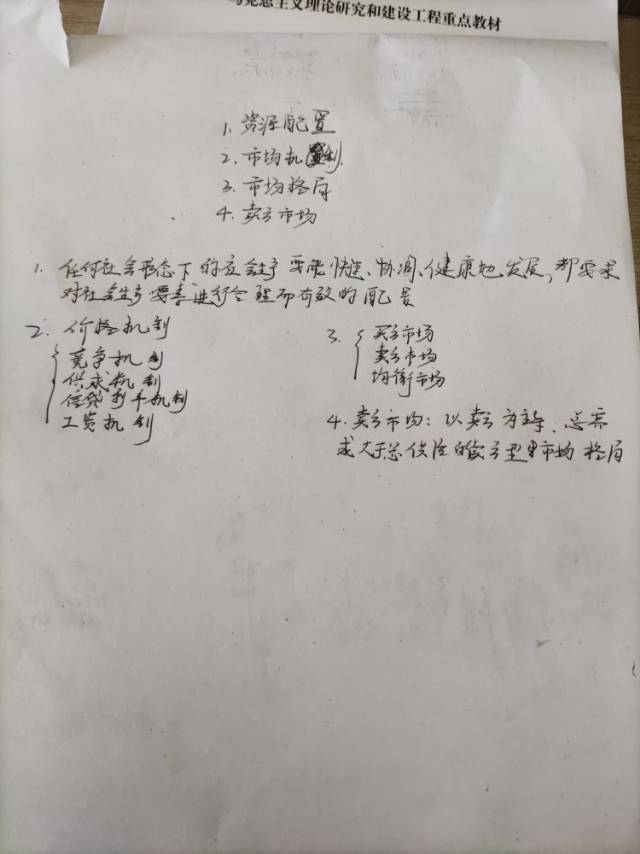 马克思主义理论研究和建设工程重点教材
1. 资源配置
2. 市场机制
3. 市场格局
4. 卖方市场
1. 任何社会形态下的社会生产要能快速、协调、健康地发展,都要求
对社会生产要素进行合理而有效的配置
2. 价格机制
竞争机制
供求机制
信贷利率机制
工资机制
3. 买方市场
卖方市场
均衡市场
4. 卖方市场:以卖方为主导、总需
求大于总供给的 市场格局